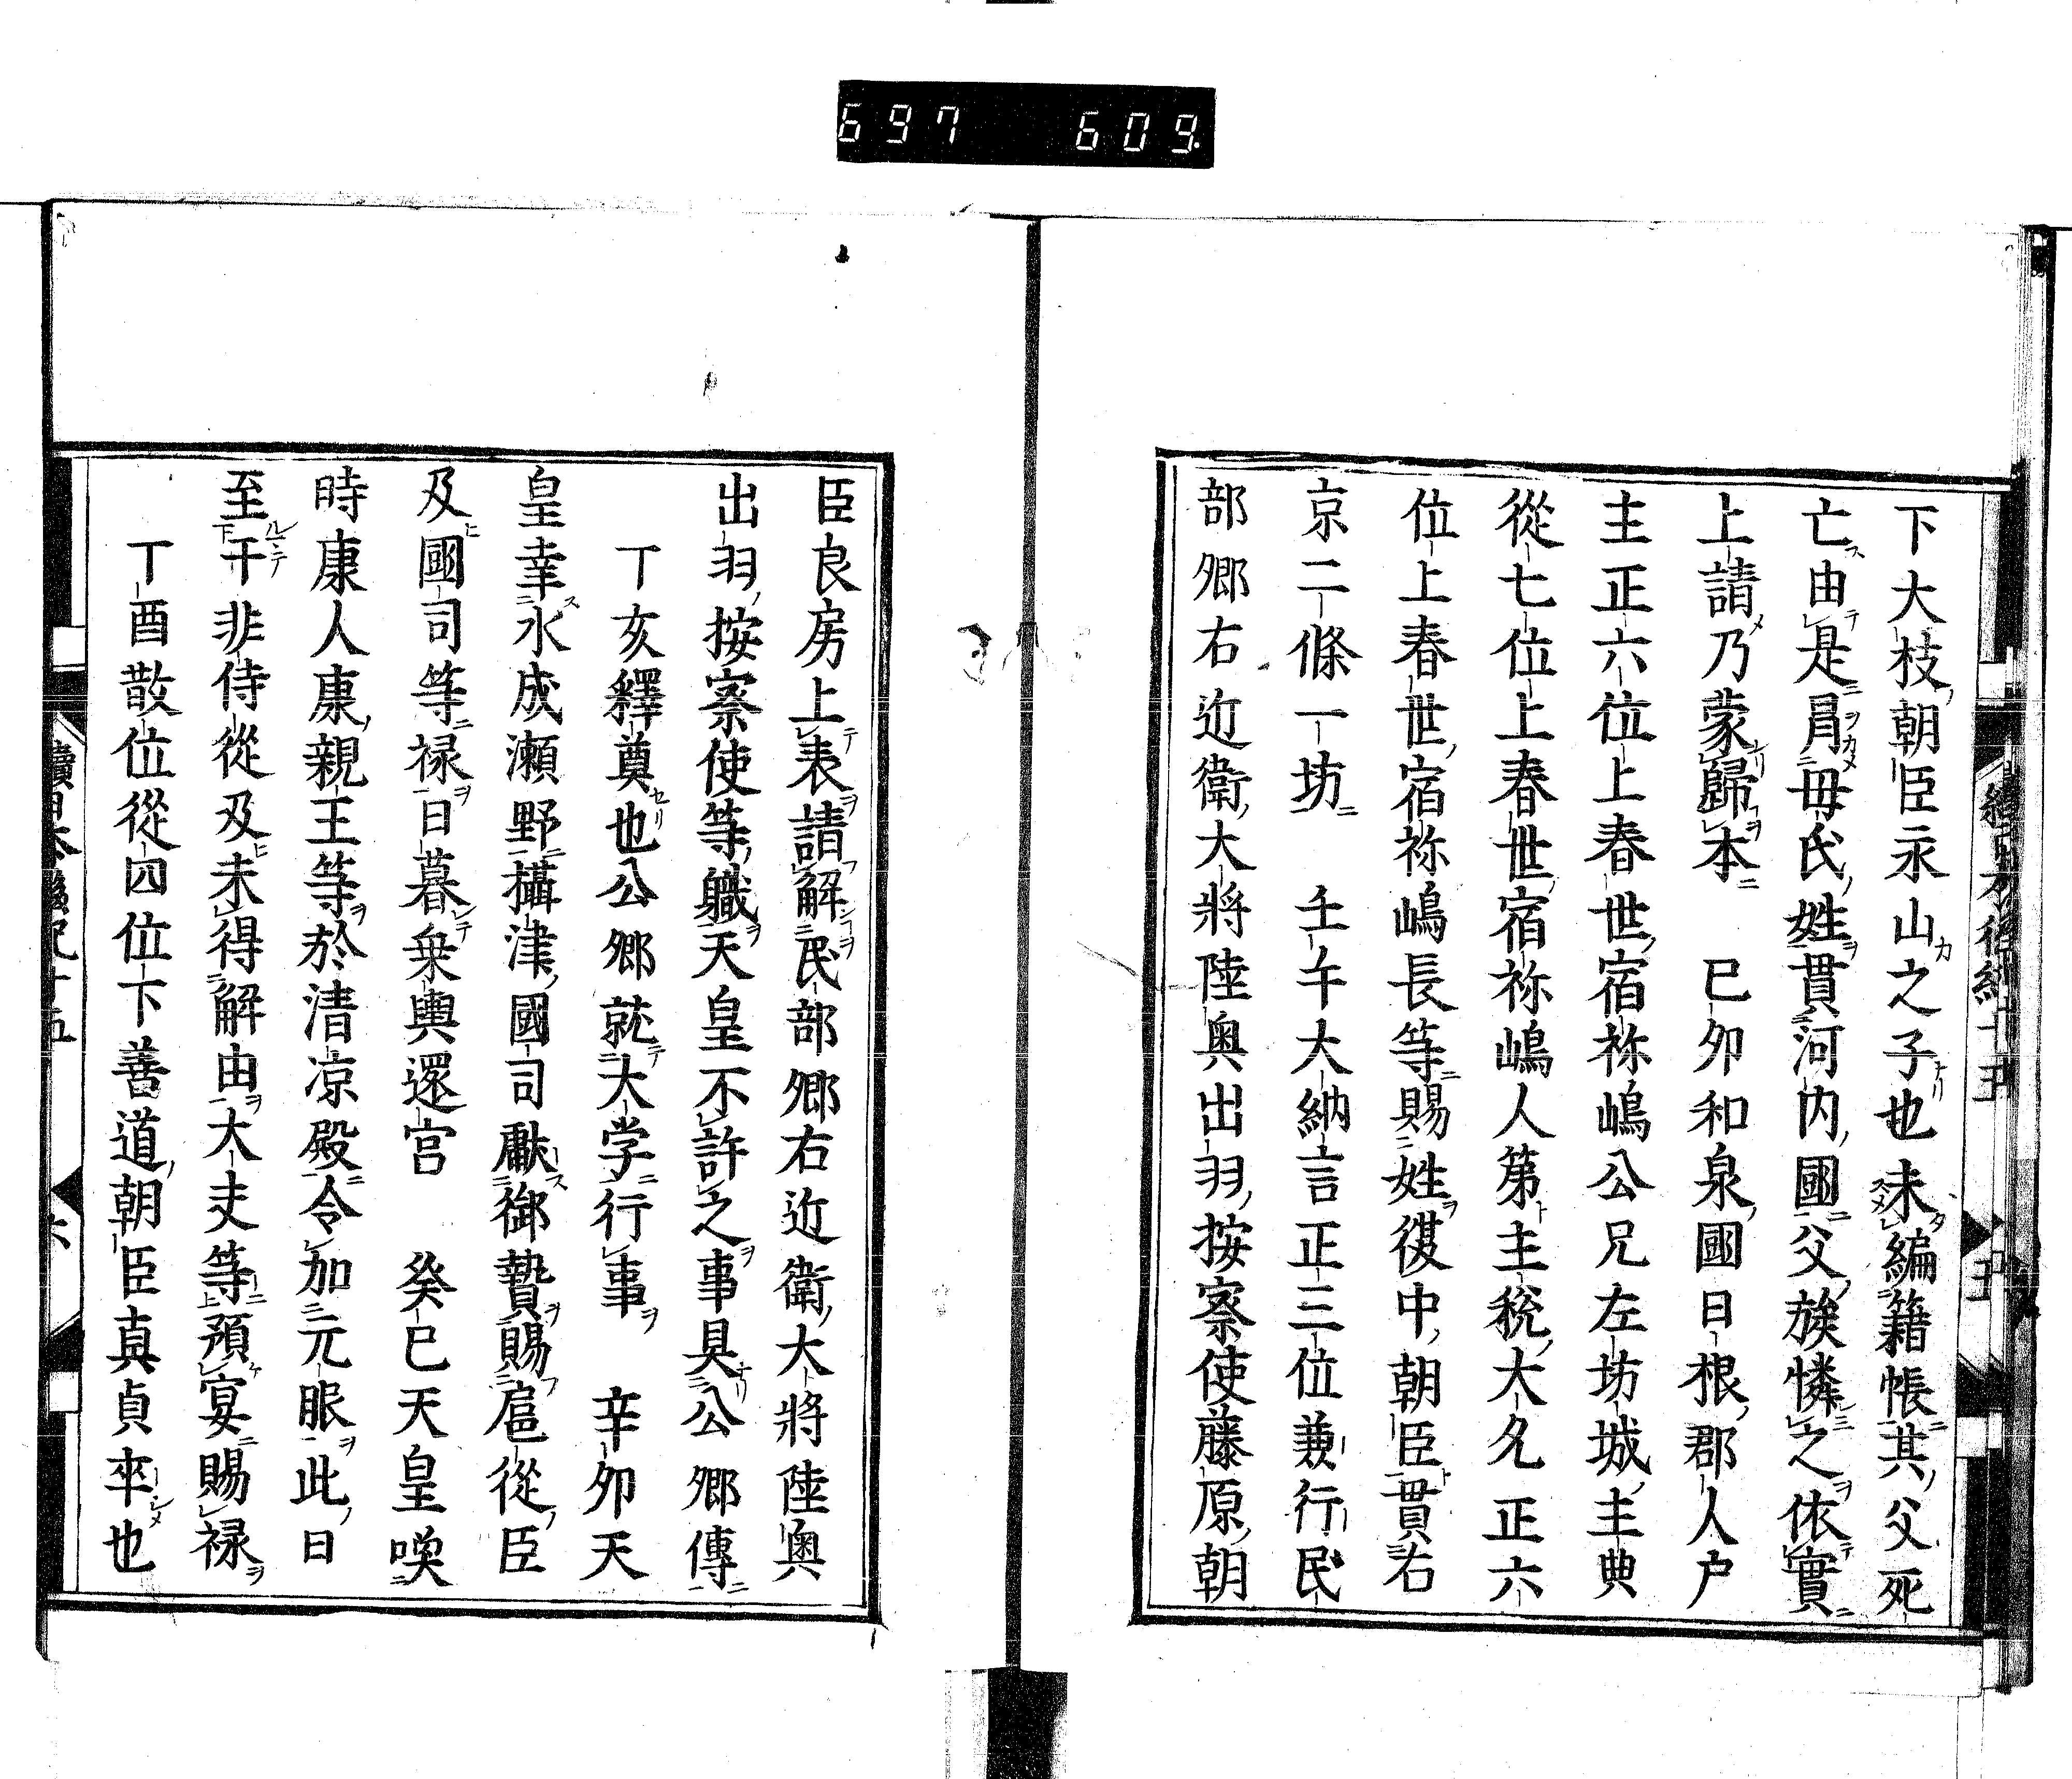 697 609
下大枝朝臣永山之子也未編籍帳其父死
亡由是冐毋氏姓貫河内國父族憐之依實
上請乃蒙歸本　已卯和泉國日根郡人戸
主正六位上春世宿祢嶋公兄左坊城主典
從七位上春世宿祢嶋人第主稅大允正六
位上春世宿祢嶋長等賜姓復中朝臣貫右
京二條一坊　壬午大納言正三位兼行民
部卿右近衛大將陸奥出羽按察使藤原朝
臣良房上表請解民部卿右近衛大將陸奥
出羽按察使等軄天皇不許之事具公卿傳
丁亥釋奠也公卿就大学行事　辛卯天
皇幸水成瀬野攝津國司獻御贄賜扈從臣
及國司等禄日暮乗輿還宫　癸巳天皇喚
時康人康親王等於清凉殿令加元服此日
至于非侍從及未得解由大夫等預宴賜禄
丁酉散位從四位下善道朝臣真貞卒也
續日本後紀十五　六